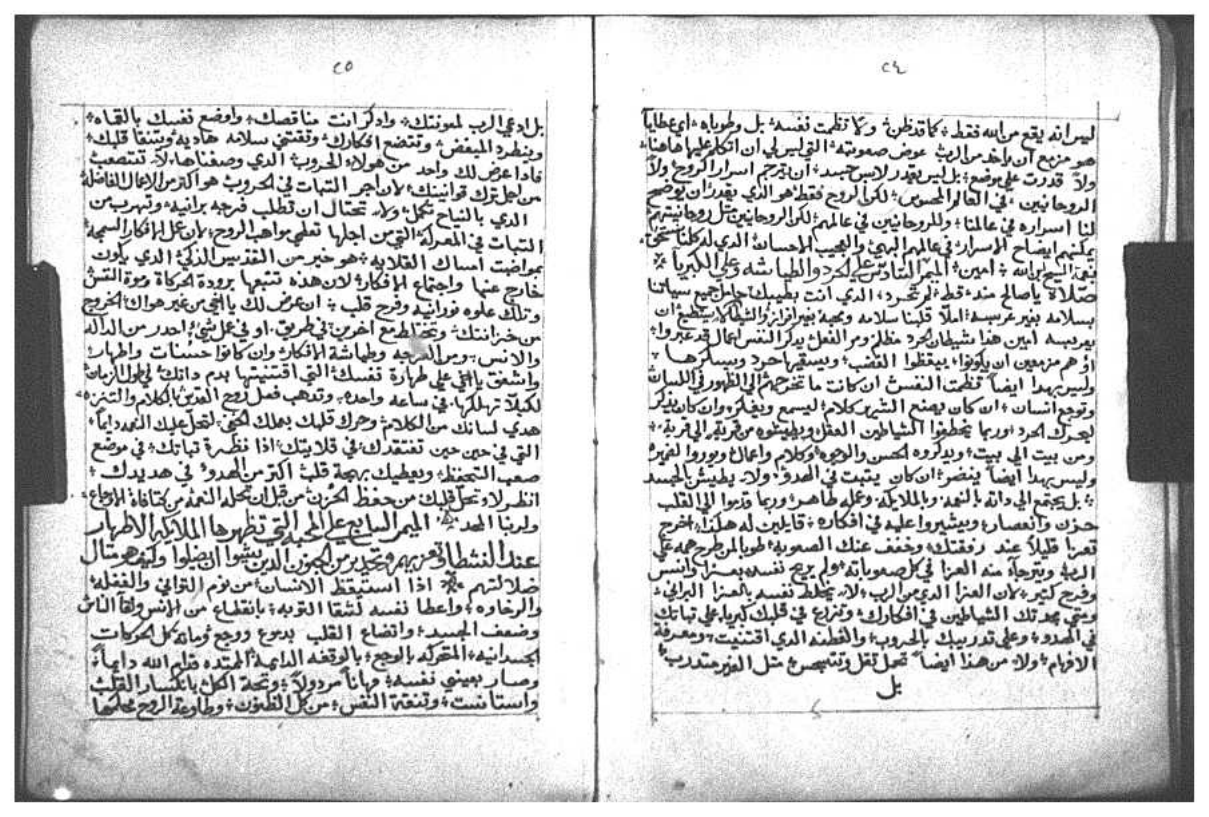 ٢٤
ليس انه يقع من الله فقط كما قد ظن ولا تظمت نفسه بل وطوباه اي عطايا
هو مزمع ان ياخد من الرب عوض صعوبته التي ليس لي ان اتكلم عليها هاهنا
ولا قدرت على وضع بل ليس يقدر لابس جسد ان يترجم اسرار الروح ولا
الروحانيين في العالم المحسوس لكن الروح فقط هو الدي يقدر ان يوضح
لنا اسراره في عالمنا وللروحانيين في عالمهم لكن الروحانيين تل روحانيتهم
يمكنهم ايضاح الاسرار في عالمهم البهي والعجيب الاحسان الدي له كلنا نستحق
بنعمة المسيح ابن الله امين الميمر السادس على الحرد والطياشه وعلى الكبريا
صلاة ياصالح مند قط لم تحرد الدي انت بطيبك حامل جميع سياتنا
بسلامه بغير عربسه املا قلبنا سلامه ومحبه بغير افراز والشيطان لا يستطيع ان
يعربسه امين هدا شيطان الحرد مظلم ومر الفعل يدكر النفس اعمال قد عبروا
او هم مزمعين ان يكونوا يبقظوا الغضب ويسقيها حرد ويسكرها
وليس بهدا ايضا تظمت النفس ان كانت ما تخرجهم الى الظهور في اللسان
وتوجع انسان ان كان يصنع الشرير كلام ليسمع ويفكر وان كان يدكر
ليحرك الحرد وربما يخطفوا الشياطين العقل ويطيشوه من قريه الى قريه
ومن بيت الى بيت ويدكروه الحسن والوجوه وكلام واعمال ويوروا لغيره
وليس بهدا ايضا ينضر ان كان يتبت في الهدو ولا يطيش بالجسد
بل يجتمع الى داته بالنعمه وبالملايكه وعمله طاهر وربما قدموا الى القلب
حزن وانعصار ويشيروا عليه في افكاره قايلين له هكدا اخرج
تعزا قليلا عند رفقتك وخفف عنك الصعوبه طوبا لمن طرح همه على
الرب وبترجاه منه العزا في كل صعوباته ولم يريح نفسه بعزا وانس
وفرح كتير لان العزا الدي من الرب لا يختلط نفسه بالعزا البراني
ومتى مدحتك الشياطين في افكارك وتزرع في قلبك كبريا على تباتك
في الهدو وعلى تدريبك بالحروب والفطنه الدي اقتنيت ومعرفة
الافهام ولا من هدا ايضا تحمل تقل وتتسجس مثل الغير متدرب
بل
٢٥
بل ادعي الرب لمعونتك وادكر انت مناقصك واوضع نفسك بالقمامه
وينطرد المبغض وتتضع افكارك وتقتني سلامه هاديه وتنقا قلبك
فادا عرض لك واحد من هولاء الحروب الدي وصفناها لا تتصعب
من اجل ترك قوانينك لان اجر التبات في الحروب هو اكتر من الاعمال الفاضله
الدي بالنياح تكمل ولا تحتال ان تطلب فرجه برانيه وتهرب من
التبات في المعركه التي من اجلها تعطى مواهب الروح لان عمل الافكار السمجه
بمواضبت امساك القلايه هو خير من القديس الدكي الدي يكون
خارج عنها واجتماع الافكار لان هده تتبعها برودة الحركاة وموة النفس
وتلك علوه نورانيه وفرح قلب ان عرض لك يااخي من غير هواك الخروج
من خزانتك وتختلط مع اخرين في طريق او في عمل شي احدر من الداله
والانس ومن الفرجه وطياشة الافكار وان كانوا حسنات واطهار
واشفق يااخي على طهارة نفسك التي اقتنيتها بدم داتك في طول الزمان
لكيلا تهلكها في ساعه واحده وتدهب فعل روح القدس بالكلام والتنزه
هدي لسانك من الكلام وحرك قلبك بعملك الخفي لتحل عليك النعمه دايما
التي في حين حين تفتقدك في قلايتك ادا نظرة تباتك في موضع
صعب التحفظ ويعطيك بهجة قلب اكتر من الهدو في هديدك
انظر لا تحل قلبك من حفظ الحزن من قبل ان تحله النعمه من كتافة الاوجاع
ولربنا المجد الميمر السابع على المحبه التي تظهرها الملايكه الاطهار
عند النشطا وتعزيهم وتحدير من الجنون الدين يشبهوا ان يضلوا وكيف هو متال
ضلالتهم ادا استيقظ الانسان من نوم التواني والغفله
والرخاوه واعطا نفسه لشقا التوبه بانقطاع من الانس ولقآ الناس
وضعف الجسد واتضاع القلب بدموع ووجع وماتة كل الحركات
الجسدانيه المتحركه بالوجع بالوقفه الدايمه الممتده قدام الله دايما
وصار بعيني نفسه مهانا مردولا وتحت الكل بانكسار القلب
واستانست وتنقة النفس من كل الظنون وطاوعة الروح محكمتها